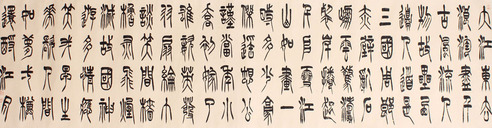 大江東去
浪淘盡千
古風流人
物故壘西
邊人道是
三國周郎
赤壁亂石
穿空驚濤
拍岸捲起
千堆雪江
山如畫一
時多少豪
傑遙想公
瑾當年小
喬初嫁了
雄姿英發
羽扇綸巾
談笑間檣
櫓灰飛煙
滅故國神
遊多情應
笑我早生
華髮人間
如夢一尊
還酹江月